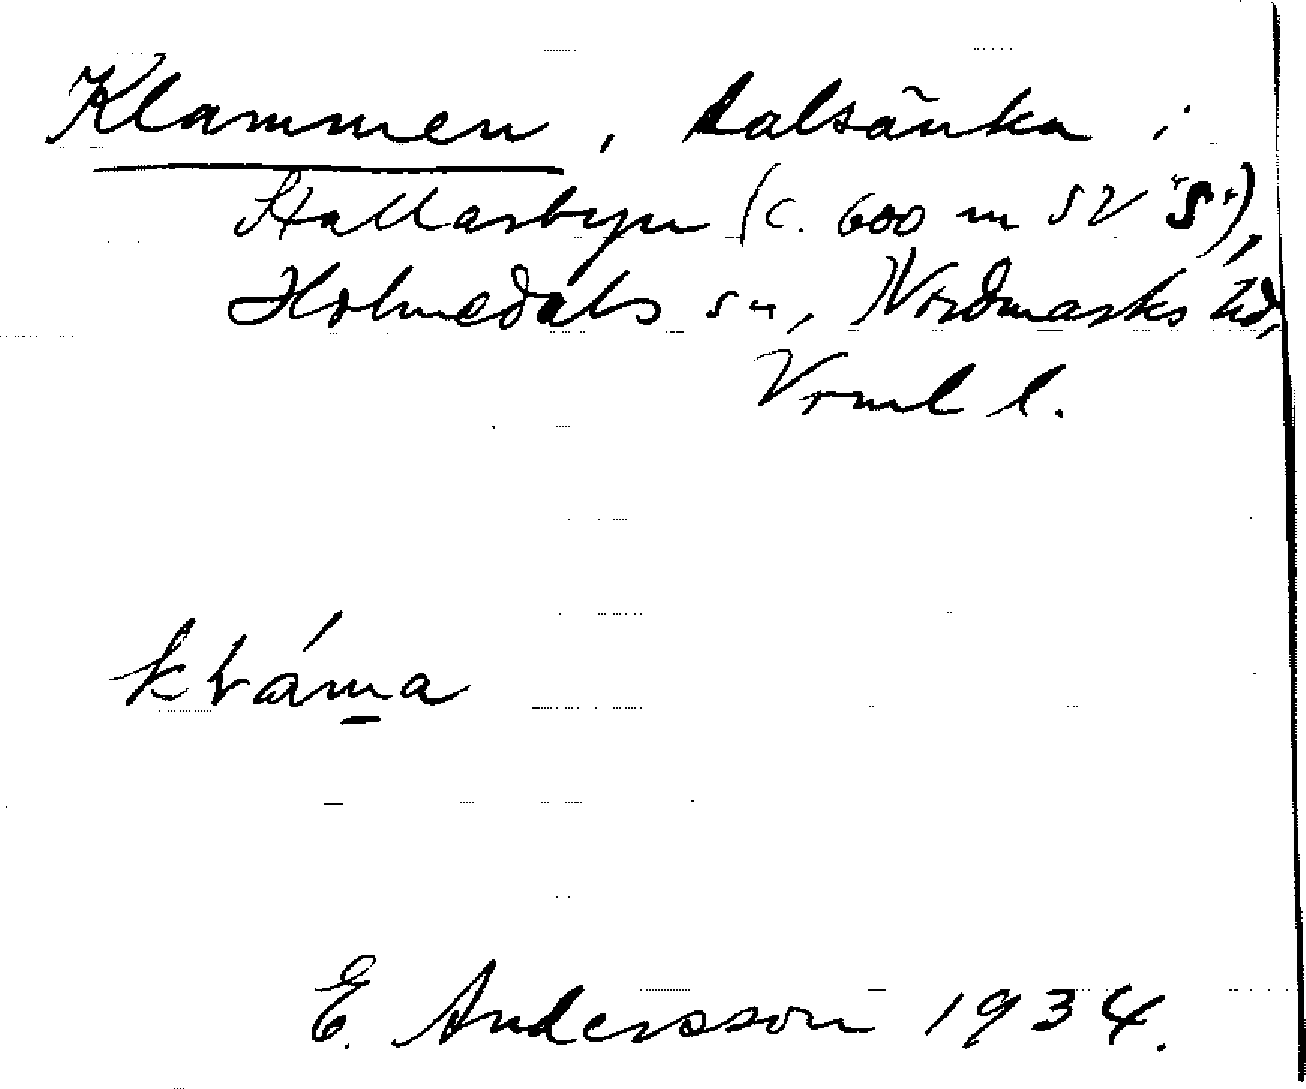 Klammen, dalsänka i
Stallarbyn (c. 600 m SV "S"),
Holmedals sn, Nordmarks hd,
Vrml l.
E. Andersson 1934.